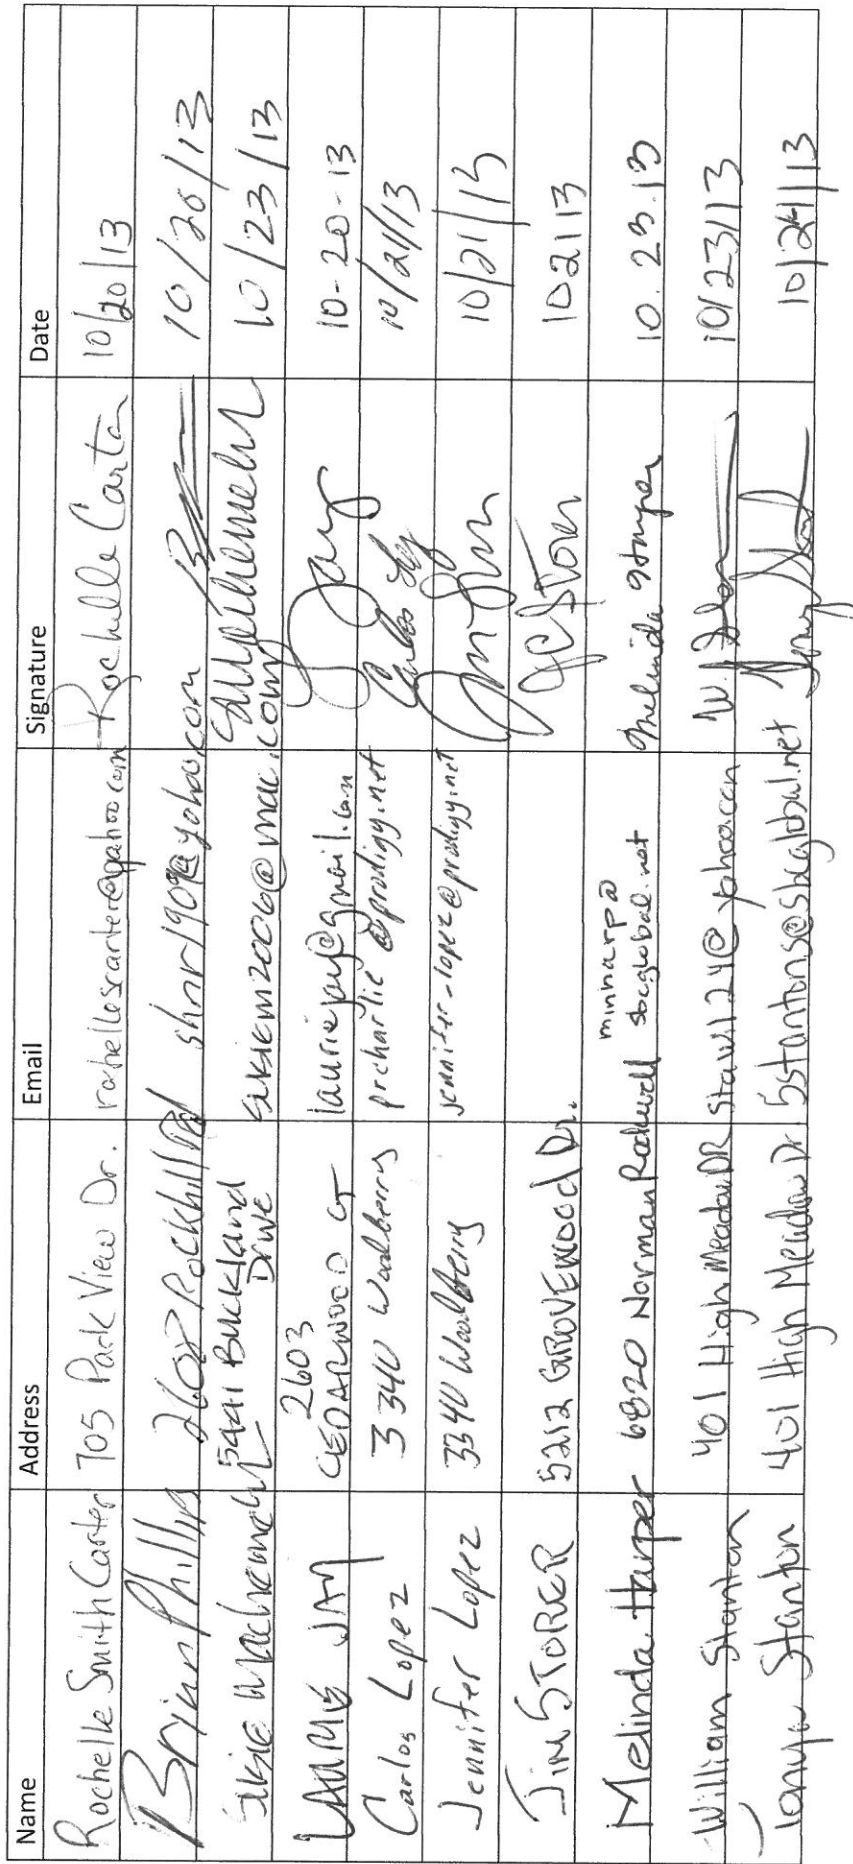 Name Address Email Signature Date
Rochelle Smith Carter 705 Park View Dr. rochellescarter@yahoo.com Rochelle Carter 10/20/13
Brian Phillips 2607 Rockhill Rd shnr1909@yahoo.com 10/20/13
Susie Machemehl 5921 Buckland Drive sukiem2006@mac.com 10/23/13
LAURIE JAY 2603 CEDARWOOD CT lauriejay@gmail.com Jay 10-20-13
Carlos Lopez 3340 Woodberry prcharlie@prodigy.net 10/21/13
Jennifer Lopez 3340 Woodberry jennifer-lopez@prodigy.net 10/21/13
JIM STORER 5212 GROVEWOOD Dr. 102113
Melinda Harper 6820 Norman Rockwell minharp@sbcglobal.net Melinda Harper 10.23.13
William Stanton 401 High Meadow DR stawil24@yahoo.com 10/23/13
Tonya Stanton 401 High Meadow Dr. 5stantons@sbcglobal.net 10/24/13